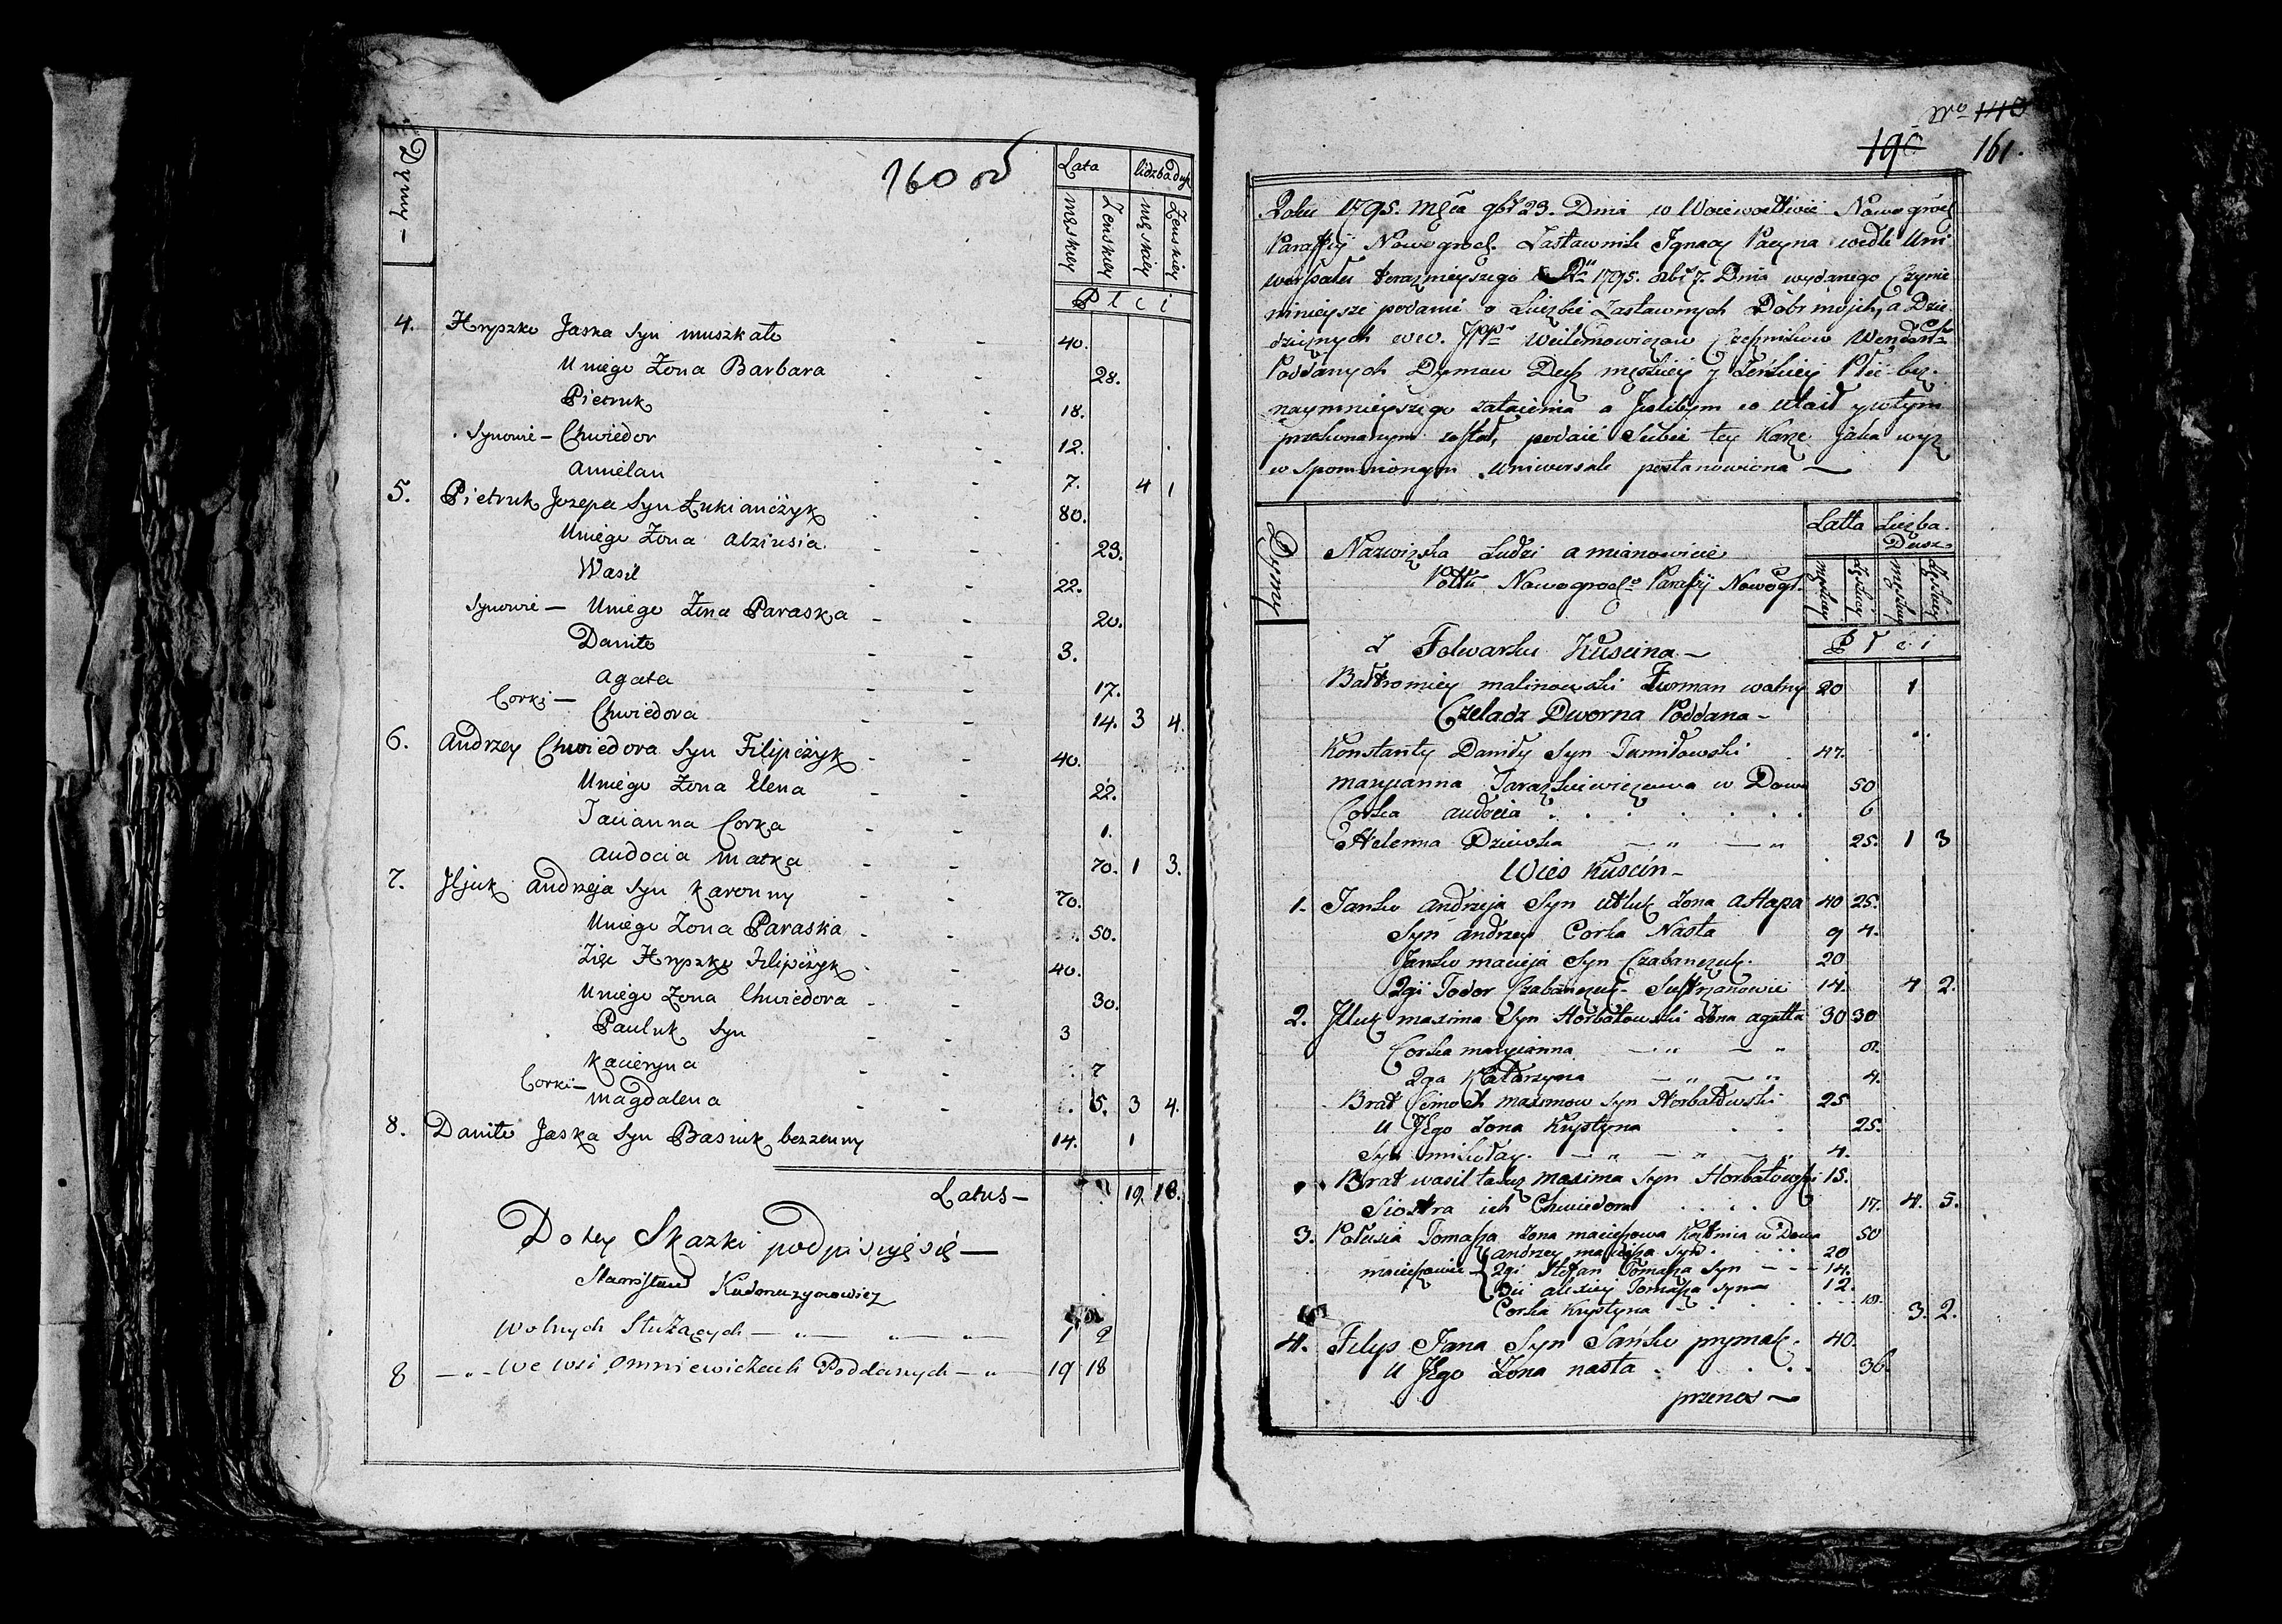 160 об
Dymy -
Lata liczba dusz
męskey Żenskey męskiey Żenskiey
Płci
4. Hryszko Jaska Syn muszkało - - 40.
Uniego Żona Barbara - - 28.
Pietruk - - 18.
Synowie - Chwiedor - - 12.
Amielan - - 7. 4 1
5. Pietruk Jozepa Syn Łukiańczyk - - 80.
Uniego Żona - - 23.
Wasil - - 22.
Synowie - Uniego Żona Paraska - - 20.
Daniło - - 3.
Agata - - 17.
Corki - Chwiedora - - 14. 3 4.
6. Andrzey Chwiedora Syn Filipczyk - - 40.
Uniego Żona Ulena - - 22.
Tacianna Corka - - 1.
Audocia Matka - - 70. 1 3.
7. Iljuk Andrzeja Syn Karonny - - 70.
Uniego Żona Paraska - - 50.
Zięc Hryszko Filipczyk - - 40.
Uniego Żona Chwiedora - - 30.
Pauluk Syn - - 3
Kacieryna - - 7
Corki - Magdalena - - 5. 3 4.
8. Daniło Jaska Syn Basiuk bezżenny 14. 1
Latus - 19. 18.
Do tey Skazki podpisuję się —
Stanisław
Wolnych Służących — " — " — " — 1 2
8 — " - We wsi Omniewiczach Poddanych - " — 19 18
No 140
190 161.
Roku 1795. Mca 9br 23. Dnia w Wojewodztwie Nowogród
Parafij Nowogrod. Zastawnik Ignacy Pacyna wedle Uni-
wersału terazniejszego Ru 1795. 8br 7. Dnia wydanego Czynie
ninieysze podanie o Liczbie Zastawnych Dobr moich, a Dzie-
dzicznych WW. JPP
Poddanych Dymow Dusz męskiey y żeńskiey Płci bez
naymnieyszego zataienia a Jeslibym co utaił y w tym
przekonanym został, podaię Siebie tey Karze jaka wyż
w spomnionym uniwersale postanowiona —
Dymy
Latta Liczba Dusz
Nazwiska Ludzi a mianowicie
Pottu Nowogrodo Parafij Nowogr.
męskiey Żeskiey męskiey Żeskiey
Z Folwarku Kuscina — Płci
Bałtromiey malinowski Furman wolny 20 1
Czeladz Dworna Poddana -
Konstanty Daniły Syn 47.
maryianna w Dowa 50
Corka audocia . . . . . . 6
Helenna Dziewka — " — " 25. 1 3
Wies Kuscin -
1. Janko andrzeja Syn Żona ahapa 40 25.
Syn andrzey Corka Nasta 9 4.
Janko macieja Syn Czabanczuk. 20
2gi Todor Czabanczuk - Siestrzanowie 14. 4 2.
2. Iluk maxima Syn Horbatowski Żona agatta 30 30
Corka maryianna — " — " 8.
2ga Katarzyna — " — " 4.
Brat Simoch maximow Syn Horbatowski 25
U Jego Żona Krystyna . . 25.
Syn mikołay. — " — " — " 4.
Brat wasil także maxima Syn Horbatowski 15.
Siostra ich Chwiedora . . . . 17. 4. 5.
3. Połusia Tomasza Żona w Dowa 50
andrzey Syn . . . . 20
2gi Stefan Tomasza Syn - - - 14.
3ci alexiey Tomasza Syna 12.
Corka Krystyna . . . . 10. 3. 2.
4. Filip Jana Syn prymak. 40.
U Jego Żona nasta . . . . 36
przenos —